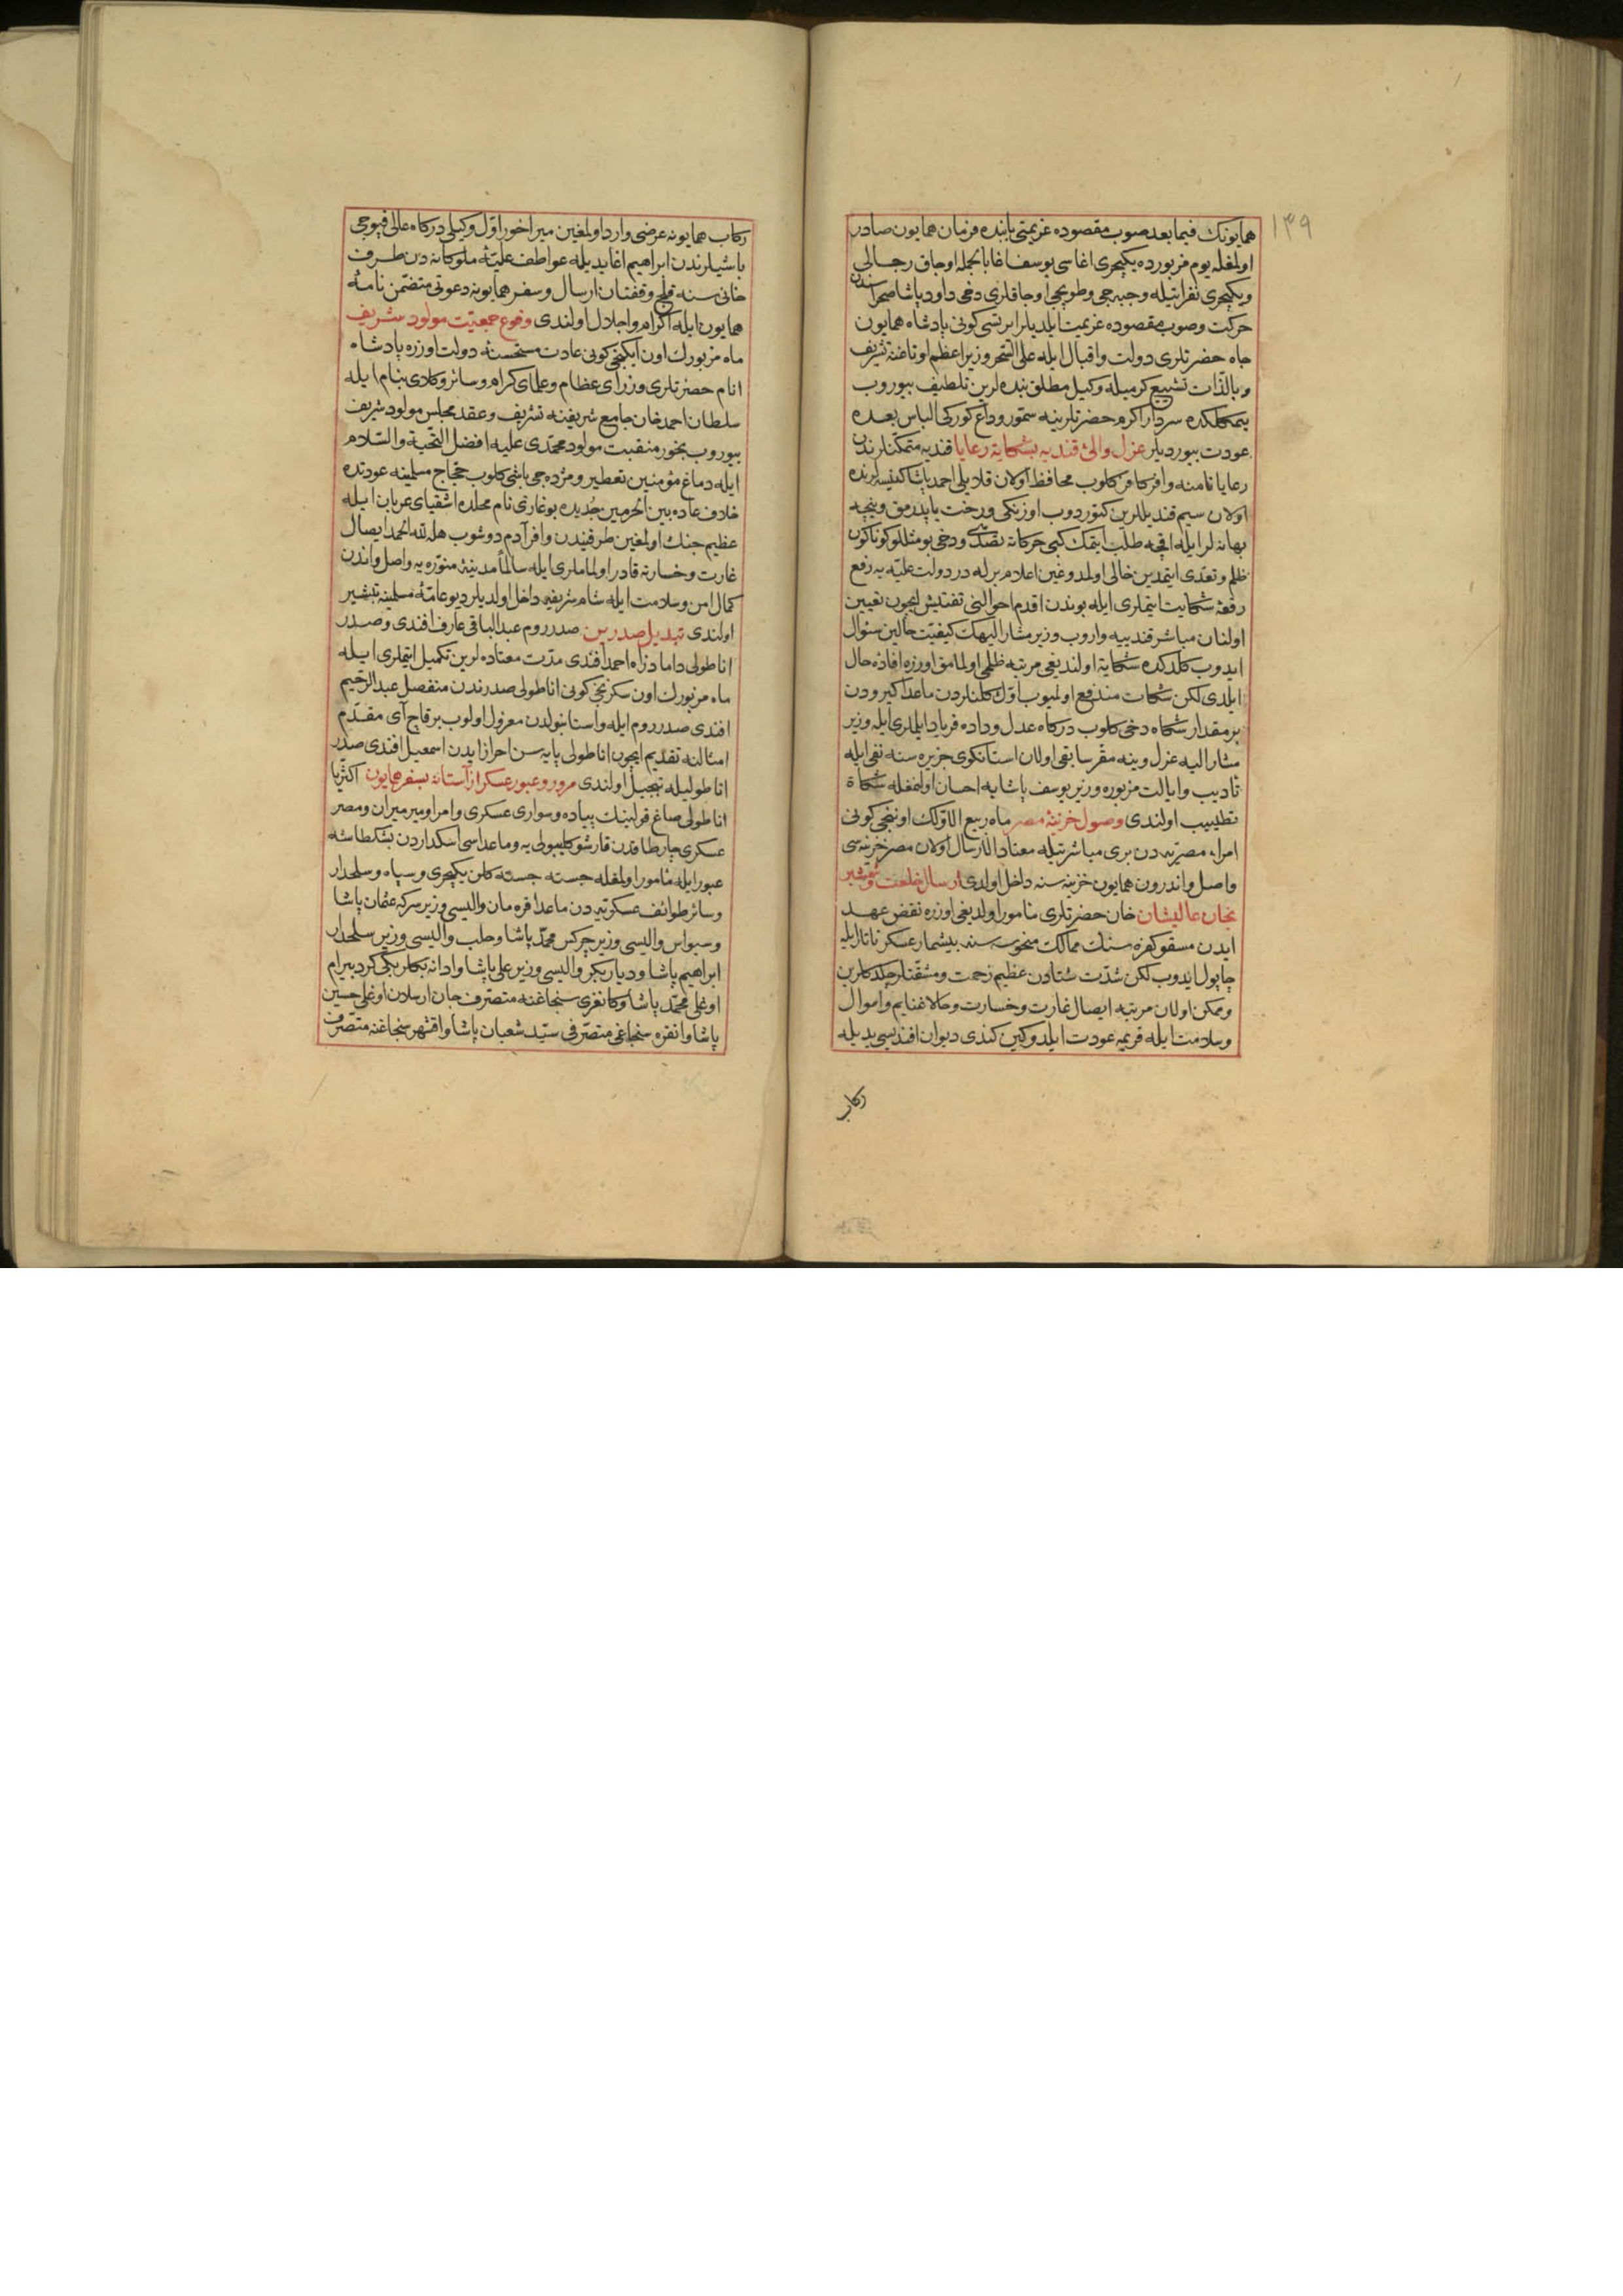 ١٣٩
همايونك فيما بعد صوب مقصوده عزيمتى بابنده فرمان همايون صادر
اولمغله يوم مزبورده يكيچرى اغاسى يوسف اغا بالجمله اوجاق رجالى
ويكيچرى نفراتيله وجبه جى وطوپجى اوجاقلرى دخى داود پاشا صحراسندن
حركت وصوب مقصوده عزيمت ايلديلر ايرتسى كونى پادشاه همايون
جاه حضرتلرى دولت واقبال ايله على السحر وزير اعظم اوتاغنه تشريف
وبالذات تشييع كرميله وكيل مطلق بنده لرين تلطيف بيوروب
سردار اكرم حضرتلرينه سمور وداع كوركى الباس بعده
عودت بيورديلر عزل والئ قنديه بشكاية رعايا قنديه متمكنلرندن
رعايا نامنه وافر كافر كلوب محافظ اولان قلايلى احمد پاشا كنيسه لرنده
اولان سيم قنديللرين كتوردوب اوزنكى ورخت ياپدرمق ونيچه
بهانه لر ايله اقچه طلب ايتمك كبى حركاته تصدى ودخى بو مثللو كوناكون
ظلم وتعدى ايتمدين خالى اولمدوغين اعلام برله در دولت عليه يه رفع
رقعۀ شكايت ايتملرى ايله بوندن اقدم احوالنى تفتيش ايچون تعيين
اولنان مباشر قنديه يه واروب وزير مشار اليهك كيفيت حالين سئوال
ايدوب كلدكده شكايت اولنديغى مرتبه ظلمى اولمامق اوزره افادۀ حال
ايلدى لكن شكات مندفع اولميوب اول كلنلردن ماعدا كيرودن
بر مقدار شكاة دخى كلوب دركاه عدل وداده فرياد ايلملرى ايله وزير
مشار اليه عزل وينه مقر سابقى اولان استانكوى جزيره سنه نفى ايله
تاديب وايالت مزبوره وزير يوسف پاشايه احسان اولنمغله شكاة
تطييب اولندى وصول خزينۀ مصر ماه ربيع الاولك اوننجى كونى
امراء مصريه دن برى مباشرتيله معتاد الارسال اولان مصر خزينه سى
واصل واندرون همايون خزينه سنه داخل اولدى ارسال خلعت وشمشير
بخان عاليشان خان حضرتلرى مامور اولديغى اوزره نقض عهد
ايدن مسقو كفره سنك ممالك منحوسه سنه بيشمار عسكر تاتار ايله
چاپول ايدوب لكن شدت شتادن عظيم زحمت ومشقتلر چكدكلرين
وممكن اولان مرتبه ايصال غارت وخسارت وحالا غنايم واموال
وسلامت ايله قريمه عودت ايلدوكين كندى ديوان افنديسى يديله
ركاب
ركاب همايونه عرضى وارد اولمغين ميراخور اول وكيلى دركاه عالى قپوجى
باشيلرندن ابراهيم اغا يديله عواطف عليۀ ملوكانه دن طرف
خانى سنه قلج وقفتان ارسال وسفر همايونه دعوتى متضمن نامۀ
همايون ايله اكرام واجلال اولندى وقوع جمعيت مولود شريف
ماه مزبورك اون ايكنجى كونى عادت مستحسنۀ دولت اوزره پادشاه
انام حضرتلرى وزراى عظام وعلماى كرام وسائر وكلاى بنام ايله
سلطان احمد خان جامع شريفنه تشريف وعقد مجلس مولود شريف
بيوروب بخور منقبت مولود محمدى عليه افضل التحية والسلام
ايله دماغ مؤمنين تعطير ومژده جى باشى كلوب حجاج مسلمينه عودتده
خلاف عاده بين الحرمين جديده بوغازى نام محلده اشقياى عربان ايله
عظيم جنك اولمغين طرفيندن وافر آدم دوشوب هله لله الحمد ايصال
غارت وخسارته قادر اولماملرى ايله سالماً مدينۀ منوره يه واصل واندن
كمال امن وسلامت ايله شام شريفه داخل اولديلر ديو عامۀ مسلمينه تبشير
اولندى تبديل صدرين صدر روم عبد الباقى عارف افندى وصدر
اناطولى داماد زاده احمد افندى مدت معتاده لرين تكميل ايتملرى ايله
ماه مزبورك اون سكزنجى كونى اناطولى صدرندن منفصل عبد الرحيم
افندى صدر روم ايله واستانبولدن معزول اولوب برقاچ آى مقدم
امثالنه تقديم ايچون اناطولى پايه سن احراز ايدن اسمعيل افندى صدر
اناطوليله تبجيل اولندى مرور وعبور عسكر از آستانه بسفر همايون اكثريا
اناطولى صاغ قولينك پياده وسوارى عسكرى وامرا وميرميران ومصر
عسكرى چارطاقدن قارشو كليبولى يه وماعداسى اسكداردن بشكطاشه
عبور ايله مامور اولمغله جسته جسته كلن يكيچرى وسپاه وسلحدار
وسائر طوائف عسكريه دن ماعدا قره مان واليسى وزير سركه عثمان پاشا
وسيواس واليسى وزير چركس محمد پاشا وحلب واليسى وزير سلحدار
ابراهيم پاشا ودياربكر واليسى وزير على پاشا وادانه بكلربكى كرد بيرام
اوغلى محمد پاشا وكانغرى سنجاغنه متصرف جان ارسلان اوغلى حسين
پاشا وانقره سنجاغى متصرفى سيد شعبان پاشا واقشهر سنجاغنه متصرف